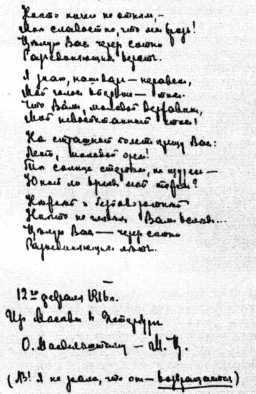 Никто ничего не отнял,—
Мне сладостно, что мы врозь!
Целую Вас через сотни
Разъединяющих верст.
Я знаю, наш дар — неравен,
Мой голос впервые — тих.
Что Вам, молодой Державин,
Мой невоспитанный стих!
На страшный полет крещу Вас:
Лети, молодой орел!
Ты солнце стерпел, не щурясь —
Юный ли взгляд мой тяжел?
Нежней и бесповоротней
Никто не глядел Вам вслед...
Целую Вас — через сотни
Разъединяющих лет.
12го февраля 1916г.
Из Москвы в Петербург
О. Мандельштаму — М. Ц.
(NB! Я не знала, что он — возвращается)